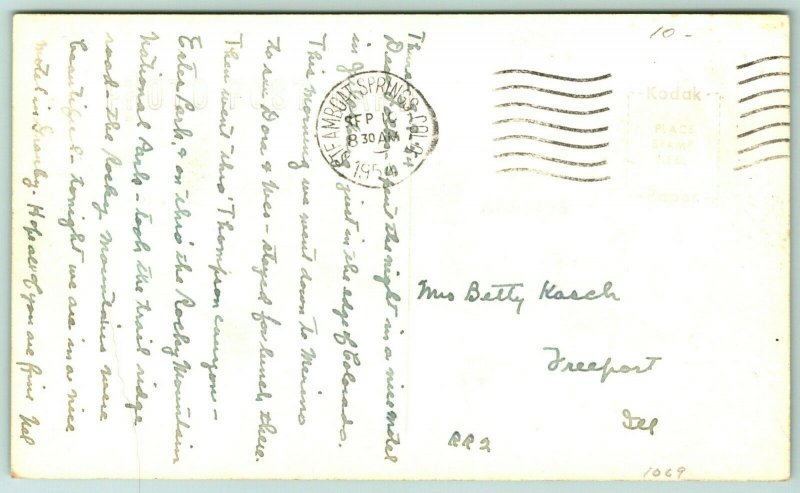 Thurs
Dear spent the night in a nice motel
in just in the edge of Colorado.
This morning we went down to Merino
to see Dora & Wes - stayed for lunch there.
Then went thro' Thompson canyon -
Estes Park, & on thro' the Rocky Mountain
National Park - took the trail ridge
road - the Rocky Mountains were
beautiful - tonight we are in a nice
motel in Granby. Hope all of you are fine Nel
STEAMBOAT SPRINGS, COLO.
SEP
830 AM
195
10-
Kodak
PLACE
STAMP
Paper
Mrs Betty Kasch
Freeport
Ill
RR2
1069